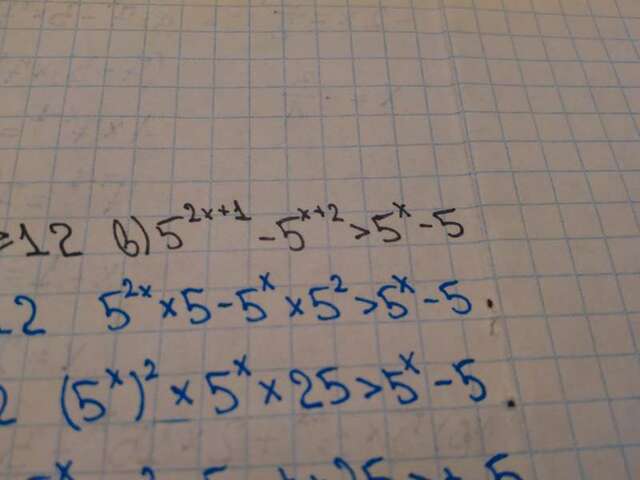 =12 в) 5^{2x+1} - 5^{x+2} > 5^x - 5
2 5^{2x} × 5 - 5^x × 5^2 > 5^x - 5.
2 (5^x)^2 × 5^x × 25 > 5^x - 5.